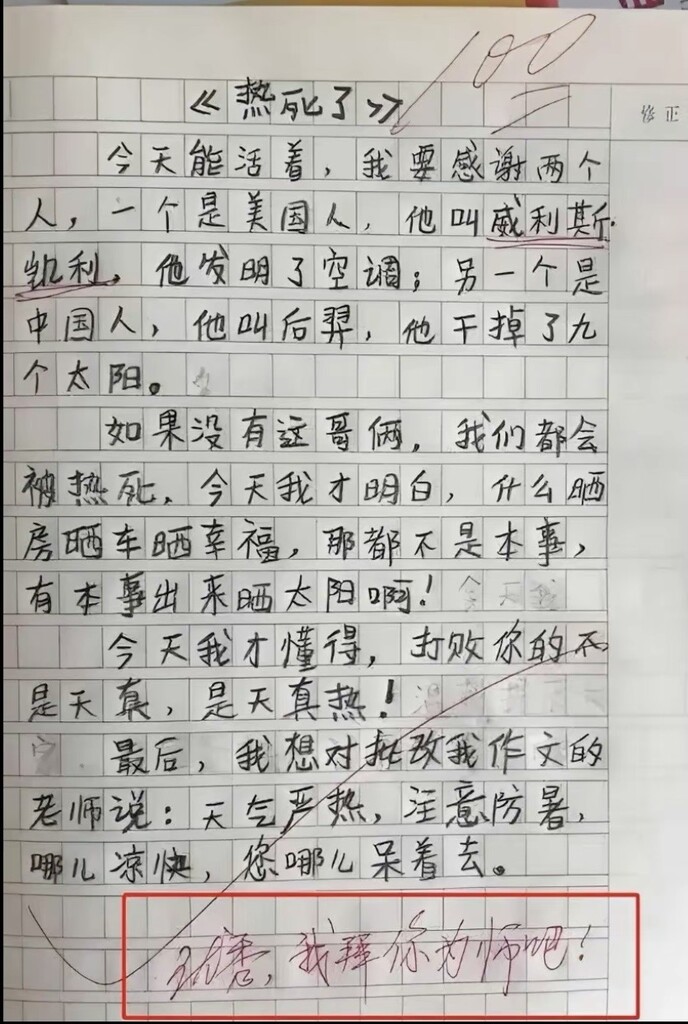 100
修正
《热死了》
今天能活着，我要感谢两个
人，一个是美国人，他叫威利斯·
凯利，他发明了空调；另一个是
中国人，他叫后羿，他干掉了九
个太阳。
如果没有这哥俩，我们都会
被热死，今天我才明白，什么晒
房晒车晒幸福，那都不是本事，
有本事出来晒太阳啊！
今天我才懂得，打败你的不
是天真，是天真热！
最后，我想对批改我作文的
老师说：天气严热，注意防暑，
哪儿凉快，您哪儿呆着去。
优秀，我拜你为师吧！